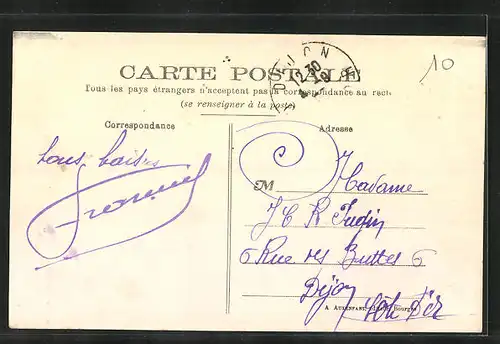 DIJON
12 30
10
CARTE POSTALE
Tous les pays étrangers n'acceptent pas la correspondance au recto
(se renseigner à la poste)
Correspondance
Adresse
bons baisers
M Madame
6 Rue des Buttes 6
Dijon
Côte d'Or